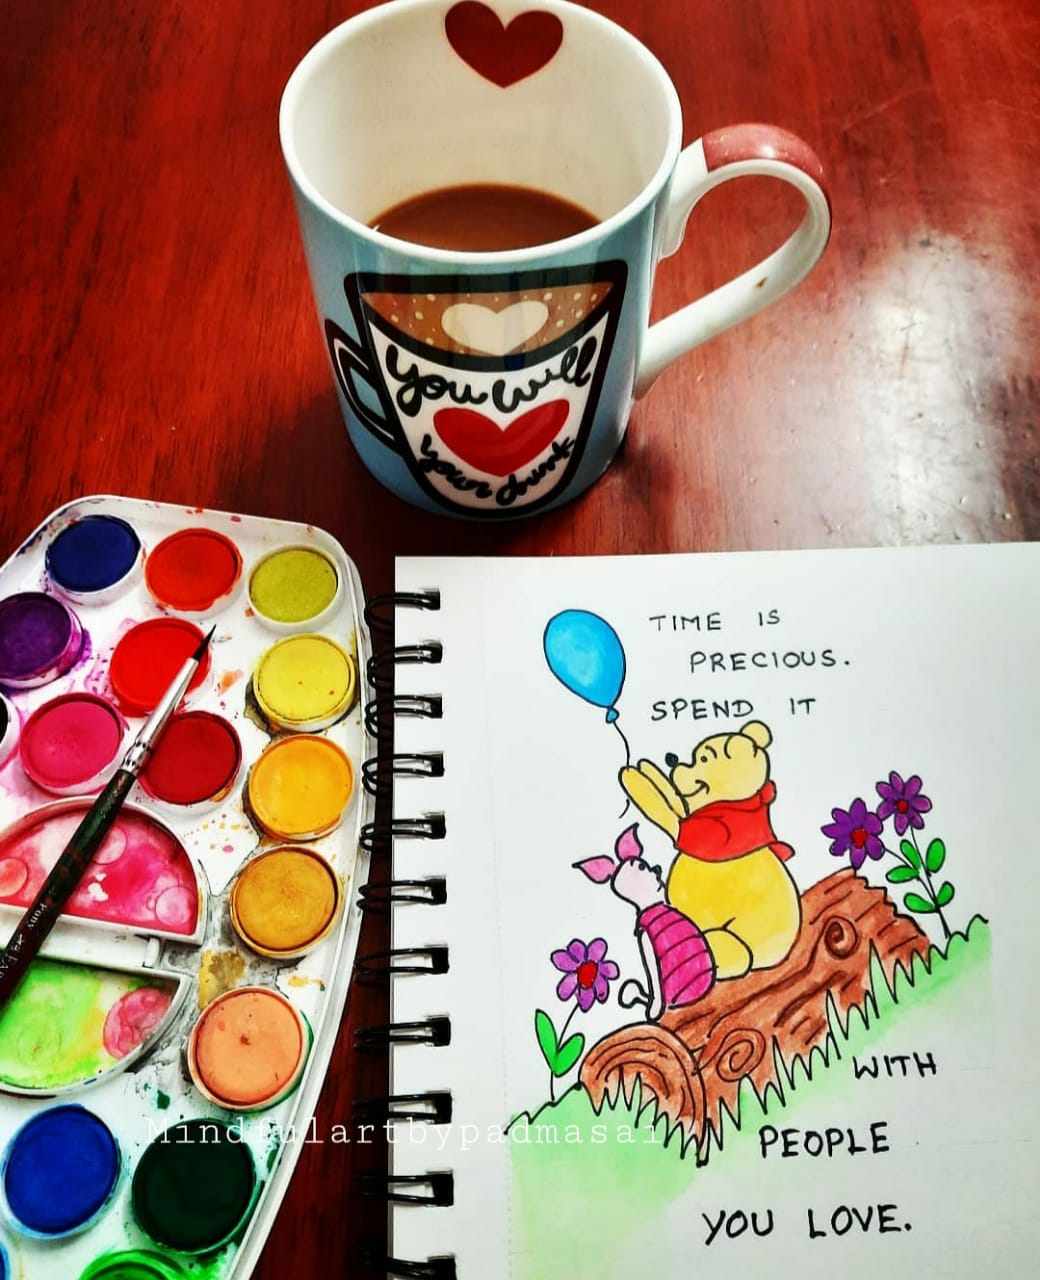 You will
your drink
TIME IS
PRECIOUS.
SPEND IT
WITH
PEOPLE
YOU LOVE.
Mindfulartbypadmasai